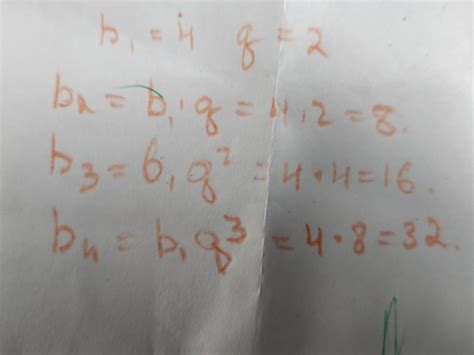 b₁ = 4 q = 2
b₂ = b₁·q = 4·2 = 8.
b₃ = b₁q² = 4·4=16.
b₄ = b₁q³ = 4·8=32.